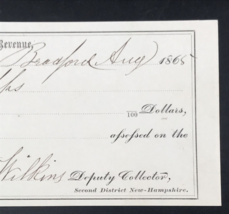 Revenue,
Bradford Aug 1865
100 Dollars,
assessed on the
Wilkins Deputy Collector,
Second District New-Hampshire.